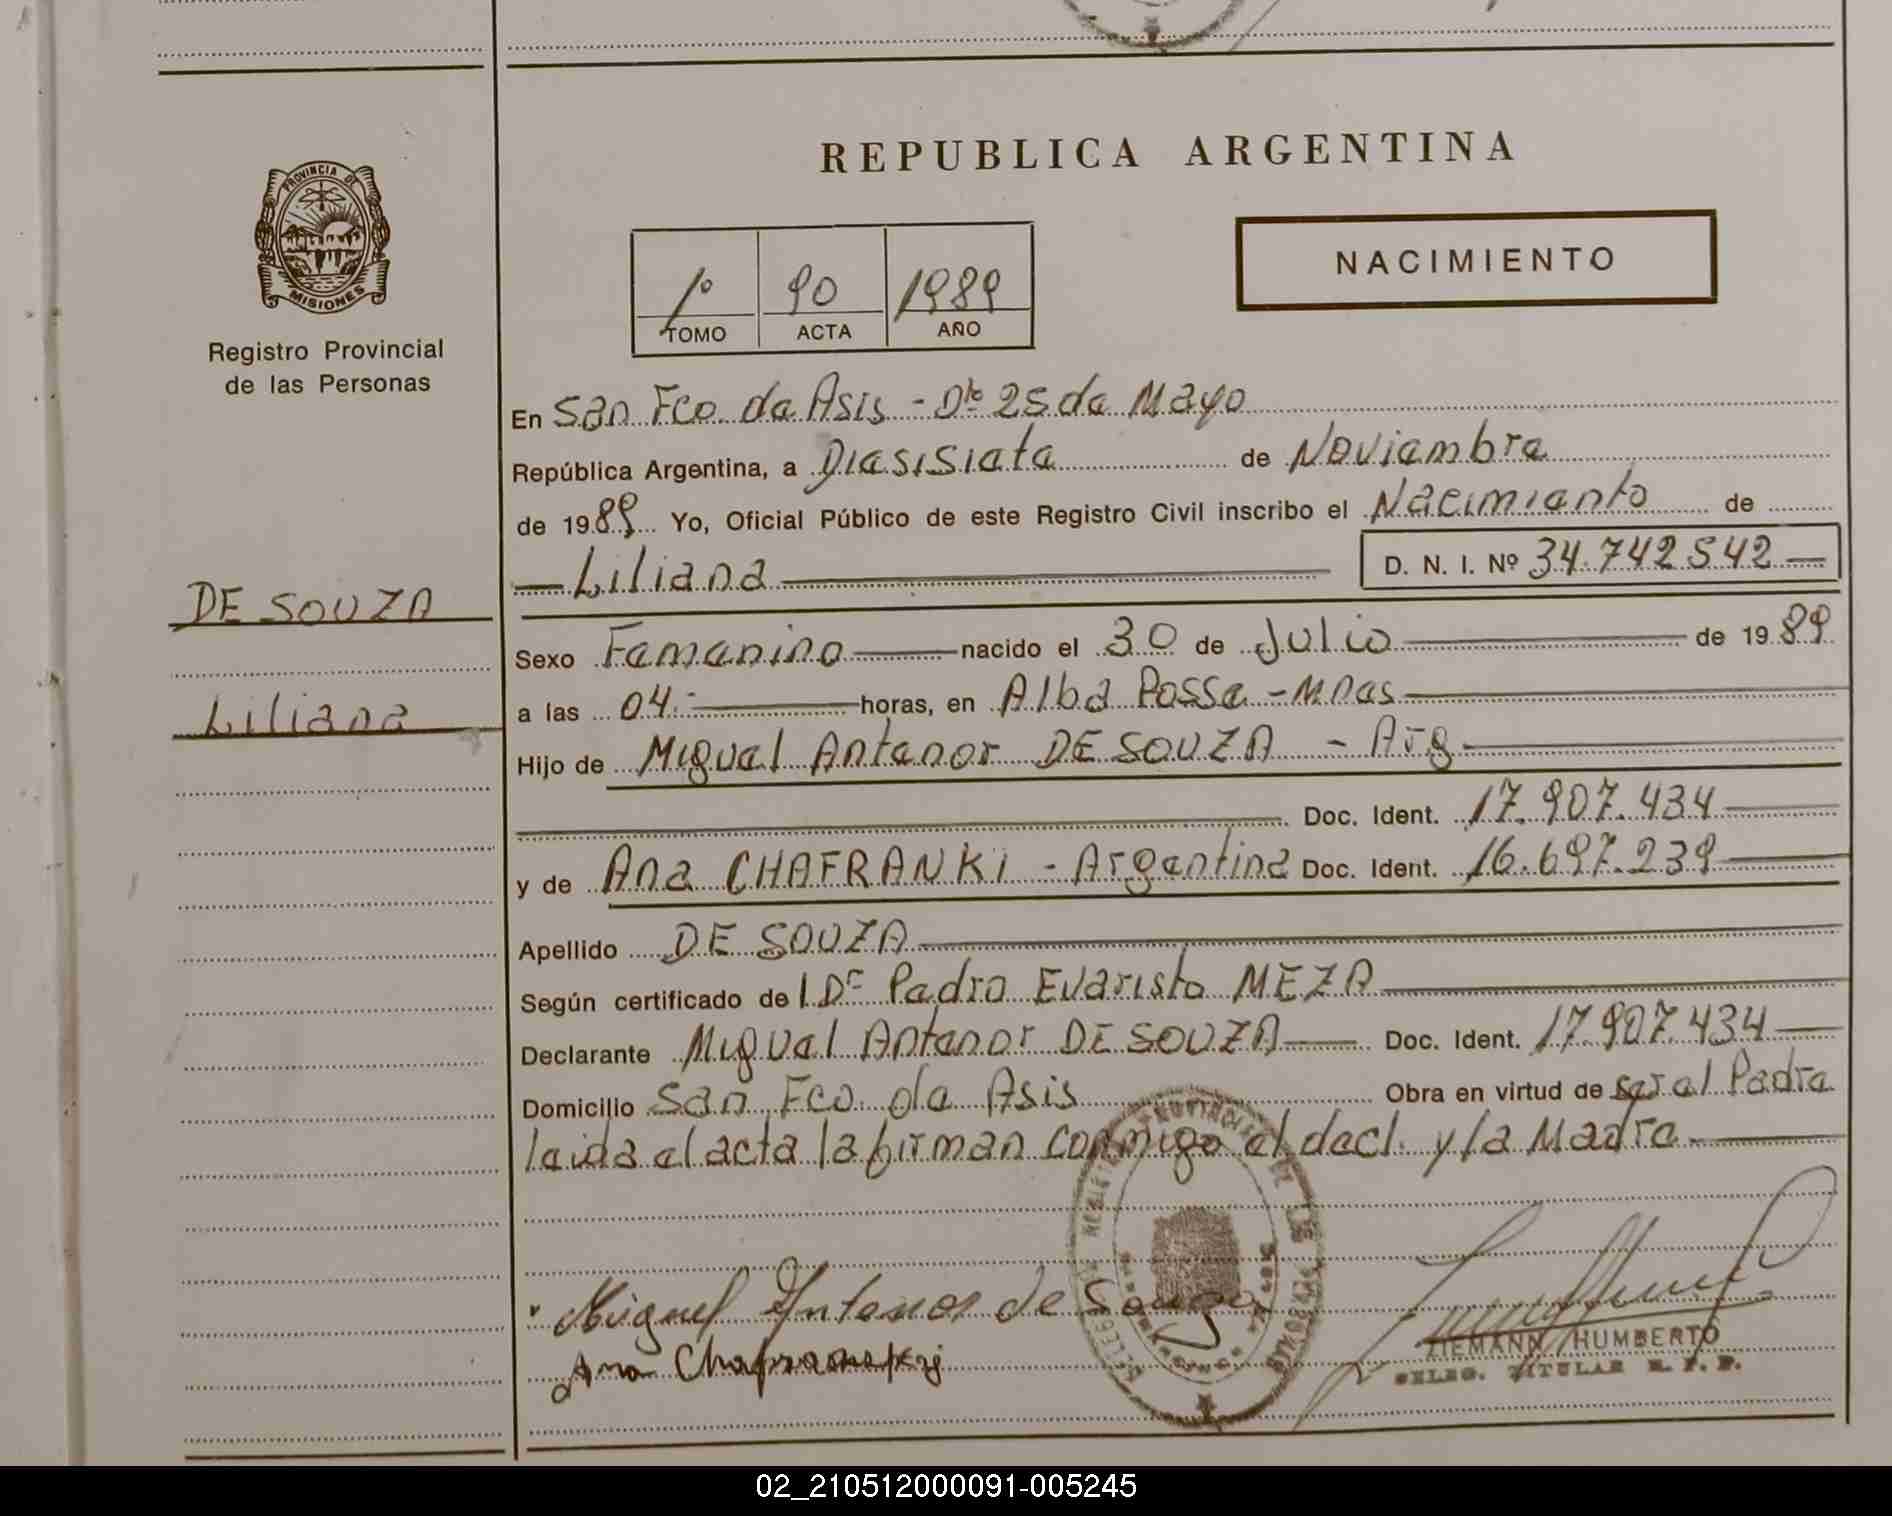 REPUBLICA ARGENTINA
PROVINCIA DE
MISIONES
Registro Provincial
de las Personas
NACIMIENTO
1º 90 1989
TOMO ACTA AÑO
En San Fco de Asis - Dto 25 de Mayo
República Argentina, a Diesisiete de Noviembre
de 1989 Yo, Oficial Público de este Registro Civil inscribo el Nacimiento de
Liliana D. N. I. Nº 34.742542
DE SOUZA
Liliana
Sexo Femenino nacido el 30 de Julio de 1989
a las 04. horas, en Alba Posse - Mnes
Hijo de Miguel Antenor DE SOUZA - Arg
Doc. Ident. 17.907.434
y de Ana CHAFRANKI - Argentina Doc. Ident. 16.697.239
Apellido DE SOUZA
Según certificado de l Dr Pedro Evaristo MEZA
Declarante Miguel Antenor DE SOUZA Doc. Ident. 17.907.434
Domicilio San Fco de Asis Obra en virtud de ser el Padre
leida el acta la firman conmigo el decl. y la Madre
Miguel Antenor de Souza
Ana Chafranski
ZIEMANN HUMBERTO
DELEG. TITULAR R. P. P.
02_210512000091-005245